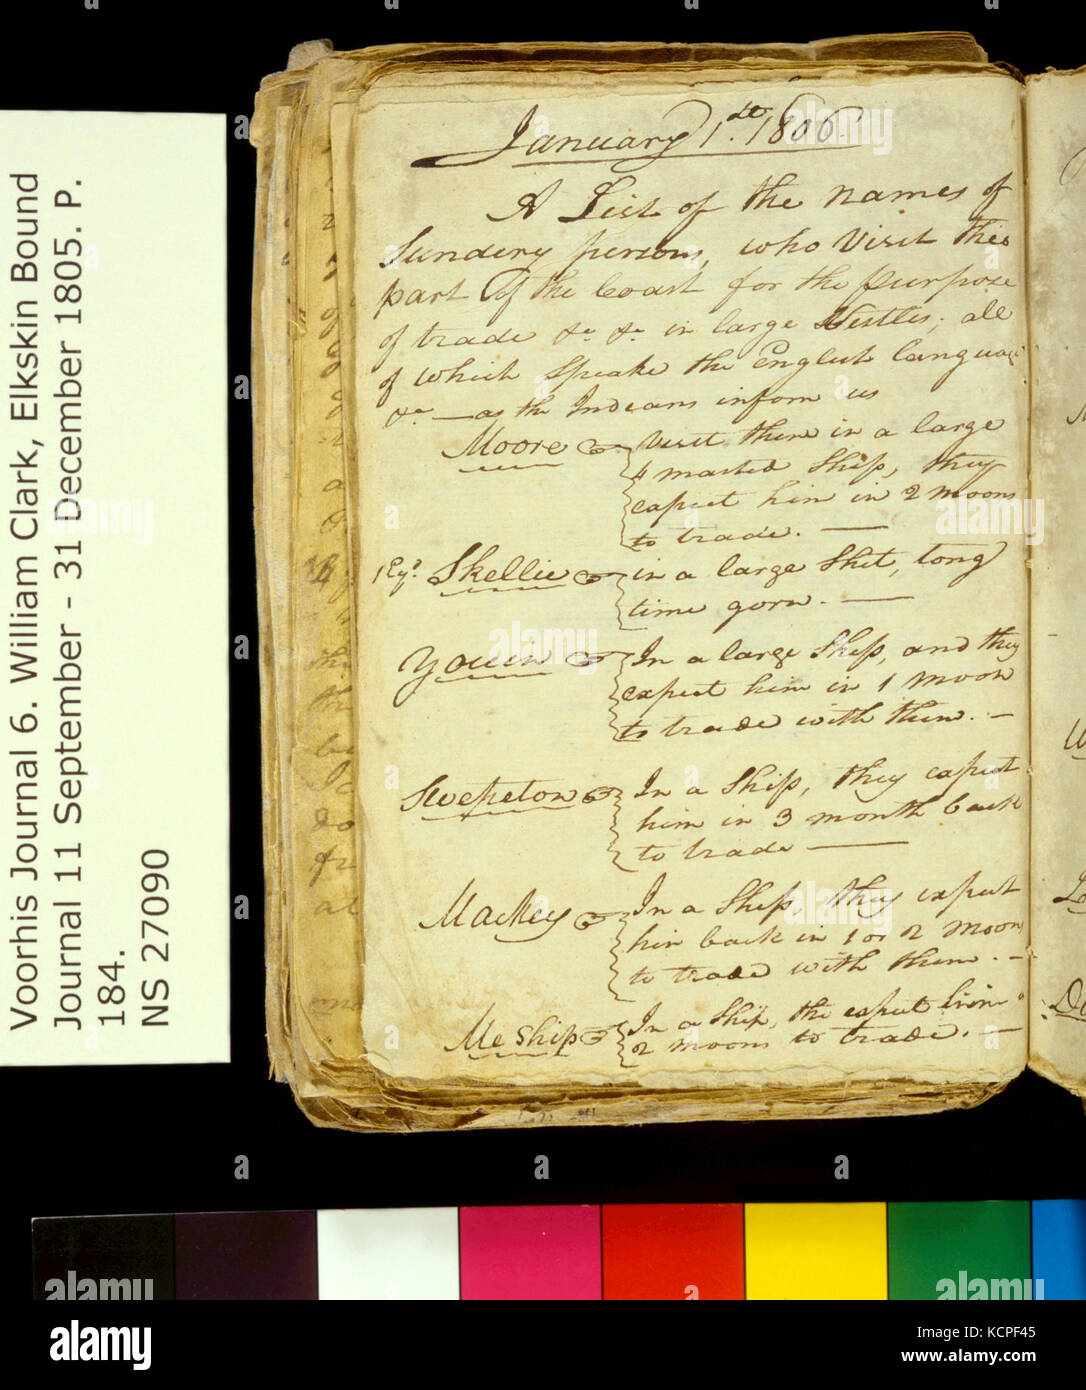 Voorhis Journal 6. William Clark, Elkskin Bound
Journal 11 September - 31 December 1805. P.
184.
NS 27090
January 1.st 1806.
A List of the names of
Sundery persons, who visit this
part of the Coast for the purpose
of trade &c. &c. in large Vestles; all
of which Speake the English language
&c. — as the Indians inform us
Moore
Visit them in a large
4 masted Ship, they
expect him in 2 moons
to trade. —
1 Eyd. Skellie
in a large Ship, long
time gorn. —
Youin
In a large Ship, and they
expect him in 1 moon
to trade with them. —
Swepeton
In a Ship, they expect
him in 3 month back
to trade —
Mackey
In a Ship, they expect
him back in 1 or 2 Moons
to trade with them. —
Meship
In a Ship, the expect him
2 moons to trade. —
alamy
Image ID: KCPF45
www.alamy.com